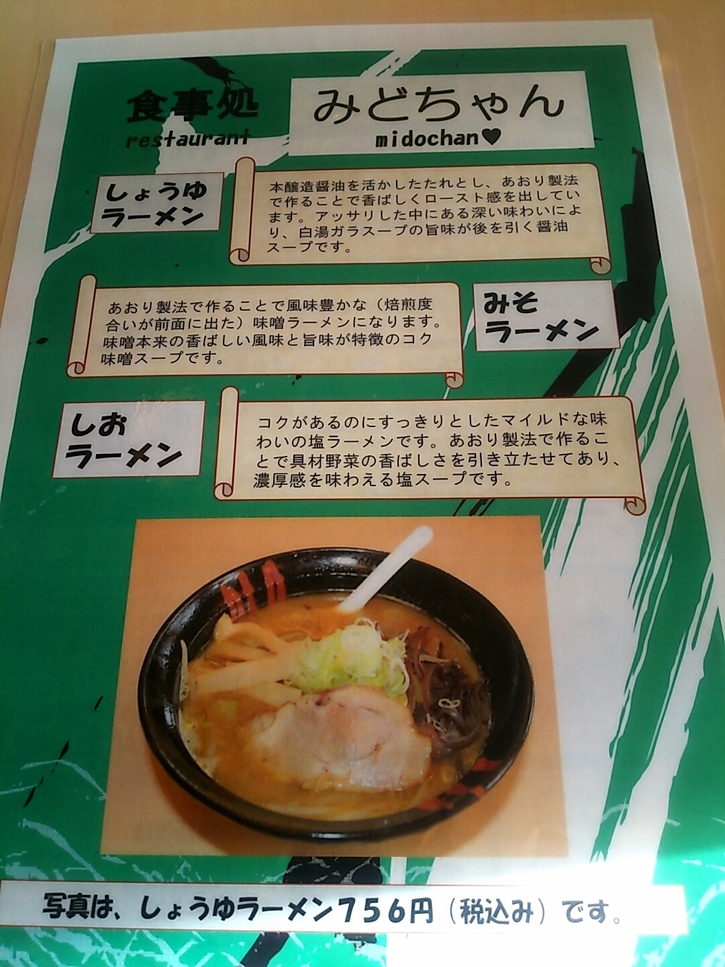 食事処
restaurant
みどちゃん
midochan♥
しょうゆ
ラーメン
本醸造醤油を活かしたたれとし、あおり製法
で作ることで香ばしくロースト感を出してい
ます。アッサリした中にある深い味わいによ
り、白湯ガラスープの旨味が後を引く醤油
スープです。
あおり製法で作ることで風味豊かな（焙煎度
合いが前面に出た）味噌ラーメンになります。
味噌本来の香ばしい風味と旨味が特徴のコク
味噌スープです。
みそ
ラーメン
しお
ラーメン
コクがあるのにすっきりとしたマイルドな味
わいの塩ラーメンです。あおり製法で作るこ
とで具材野菜の香ばしさを引き立たせてあり、
濃厚感を味わえる塩スープです。
写真は、しょうゆラーメン756円（税込み）です。